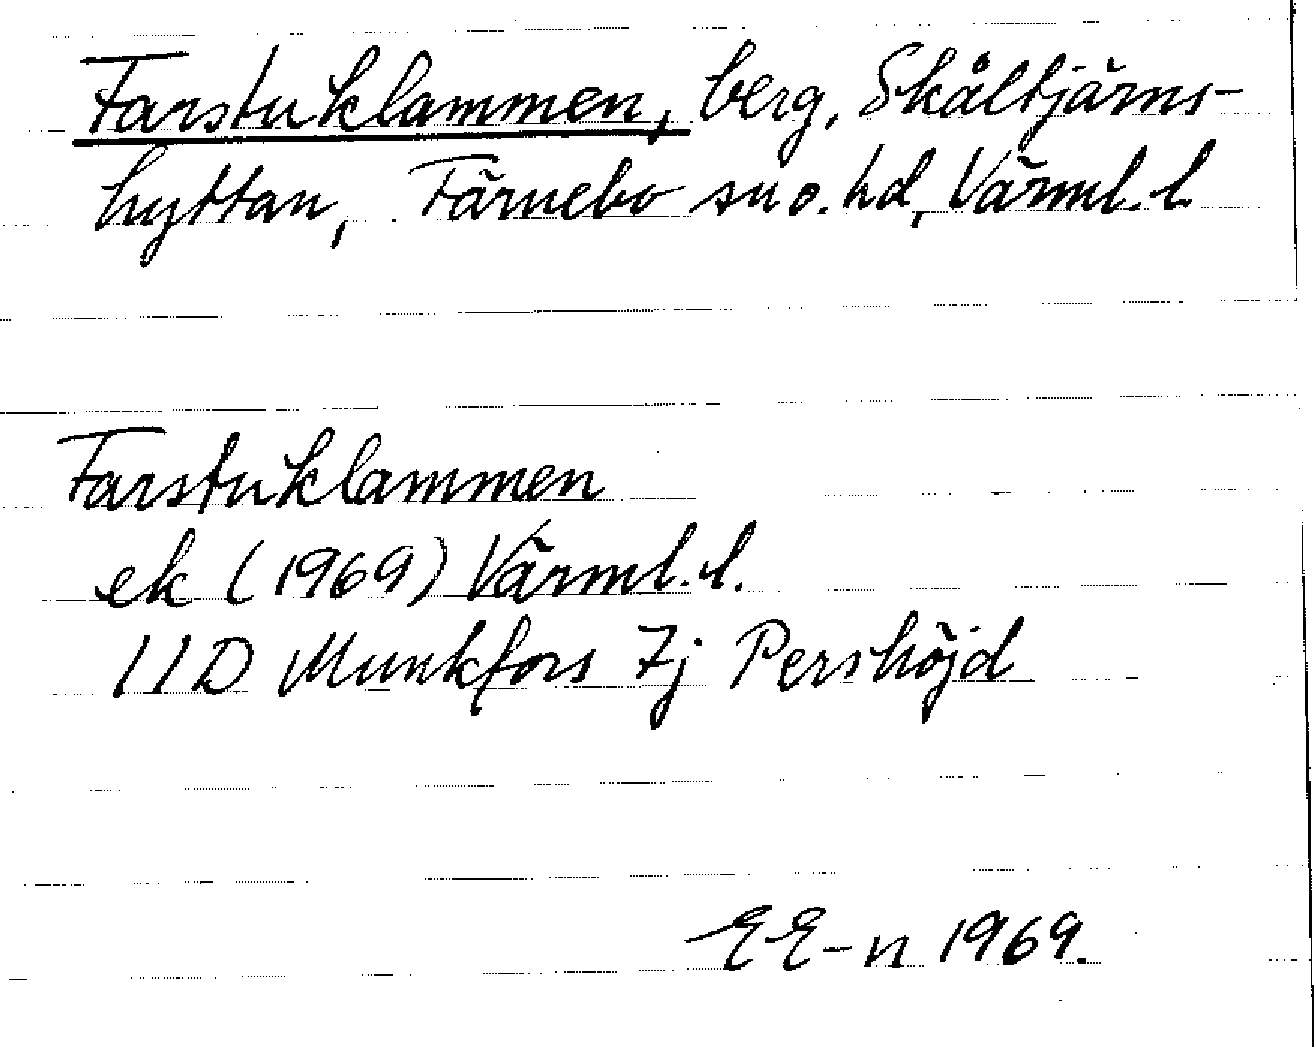 Farstuklammen, berg, Skåltjärns-
hyttan, Färnebo sn o. hd, Värml. l.
Farstuklammen
ek (1969) Värml. l.
11D Munkfors 7j Pershöjd
EE-n 1969.